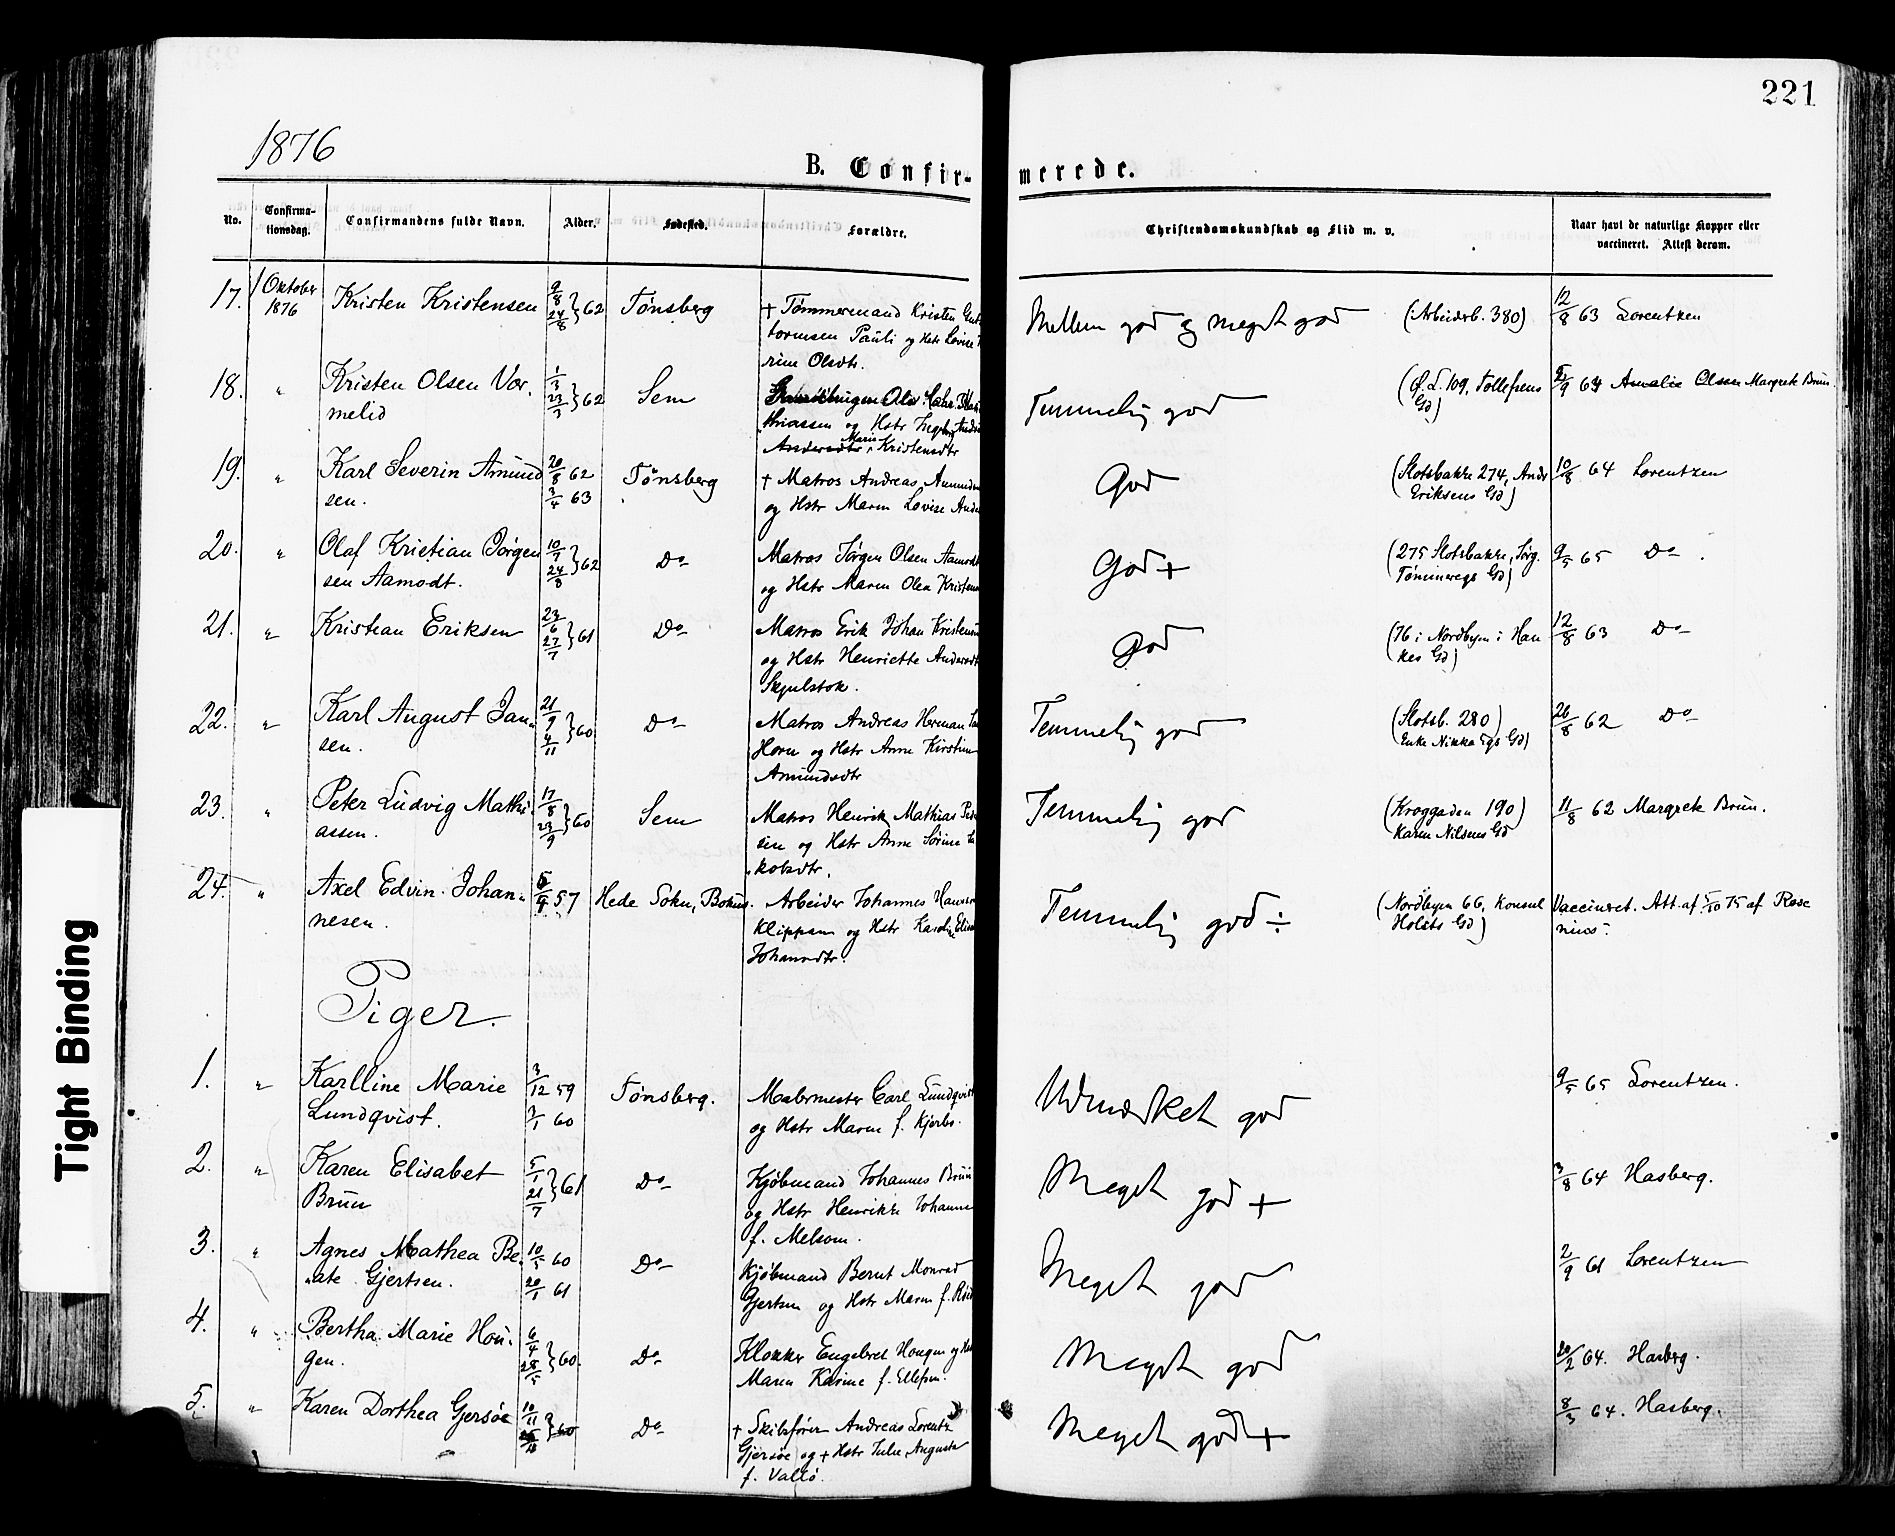 221
1876
B. Confir- merede.
No. Confirma- tionsdag. Confirmandens fulde Navn. Alder. Fødested. Forældre. Christendomskundskab og Flid m. v. Naar havt de naturlige Kopper eller vaccineret. Attest derom.
17. 1 Oktober 1876 Kristen Kristensen 9/8 24/8 } 62 Tønsberg † Tømmermand Kristen Gut
tormsen Pauli og Hstr Lovise
rine Olsdtr.
Mellem god og meget god (Arbeiderb. 380) 12/8 63 Lorentzen
18. " Kristen Olsen Vor
melid 1/3 23/3 } 62 Sem
thiassen og Hstr Ingeborg
Andersdtr Marie Kristensdtr
Temmelig god (Ø. L. 109, Tollefsens
Gd) /9 64 Amalie Olsen Margrete Brun.
19. " Karl Severin Amund
sen. 20/8 62
3/4 63 Tønsberg † Matros Andreas Amundsen
og Hstr Maren Lovise Ander
God (Slotsbakke 274, Andr
Eriksens Gd) 10/8 64 Lorentzen
20. " Olaf Kristian Jørgen
sen Aamodt. 10/7 24/8 } 62 Do Matros Jørgen Olsen Aamodt
og Hstr Maren Olea Kristens
God + (275 Slotsbakke, Jørg.
Tømmeregs Gd) 9/5 65 Do
21. " Kristian Eriksen 23/6 27/7 } 61 Do Matros Erik Johan Kristensen
og Hstr Henriette Andersdt
Skjelstok.
God (76 i Nordbyen i Han
kes Gd) 12/8 63 Do
22. " Karl August Jan
sen. 21/9 4/11 } 60 Do Matros Andreas Herman
Horn og Hstr Anne Kirstine
Amundsdtr
Temmelig god (Slotsb. 280)
Enke Gd) 26/8 62 Do
23. " Peter Ludvig Mathi
assen. 17/8 23/9 } 60 Sem Matros Henrik Mathias Peder
sen og Hstr Anne Sørine Ja
kobsdtr.
Temmelig god (Kroggaden 190)
Karen Nilsens Gd 11/8 62 Margrete Brun.
24. " Axel Edvin Johan
nesen. 57 Hede Sokn, Bohus. Arbeider Johannes Hansen
Klippam og Hstr Karoline Elisa
Johansdtr.
Temmelig god ÷ (Nordbyen 66, Konsul
Holsts Gd) Vaccineret. Att. af 5/10 75 af Rose
nius.
Piger.
1. " Karlline Marie
Lundqvist. 3/12 59
7/1 60 Tønsberg. Malermester Carl Lundqvist
og Hstr Maren f. Kjerbo.
Udmærket god 9/5 65 Lorentzen.
2. " Karen Elisabet
Brun 5/1 21/7 } 61 Do Kjøbmand Johannes Brun
og Hstr Henrikke Johanne
f. Melsom.
Meget god + 3/8 64 Hasberg.
3. " Agnes Mathea Be
ate Gjertsen. 10/5 60
20/1 61 Do Kjøbmand Bernt Monrad
Gjertsen og Hstr Maren f.
Meget god 2/9 61 Lorentzen
4. " Bertha Marie Hou
gen. 6/4 28/5 } 60. Do Klokker Engebret Hougen og Hstr
Maren Karine f. Ellefsen.
Meget god 20/2 64. Hasberg.
5. " Karen Dorthea Gjersøe 10/11 } 60 Do † Skibsfører Andreas Lorentz
Gjersøe og † Hstr Julie Augusta
f. Vallø.
Meget god + 8/3 64. Hasberg.
Tight Binding